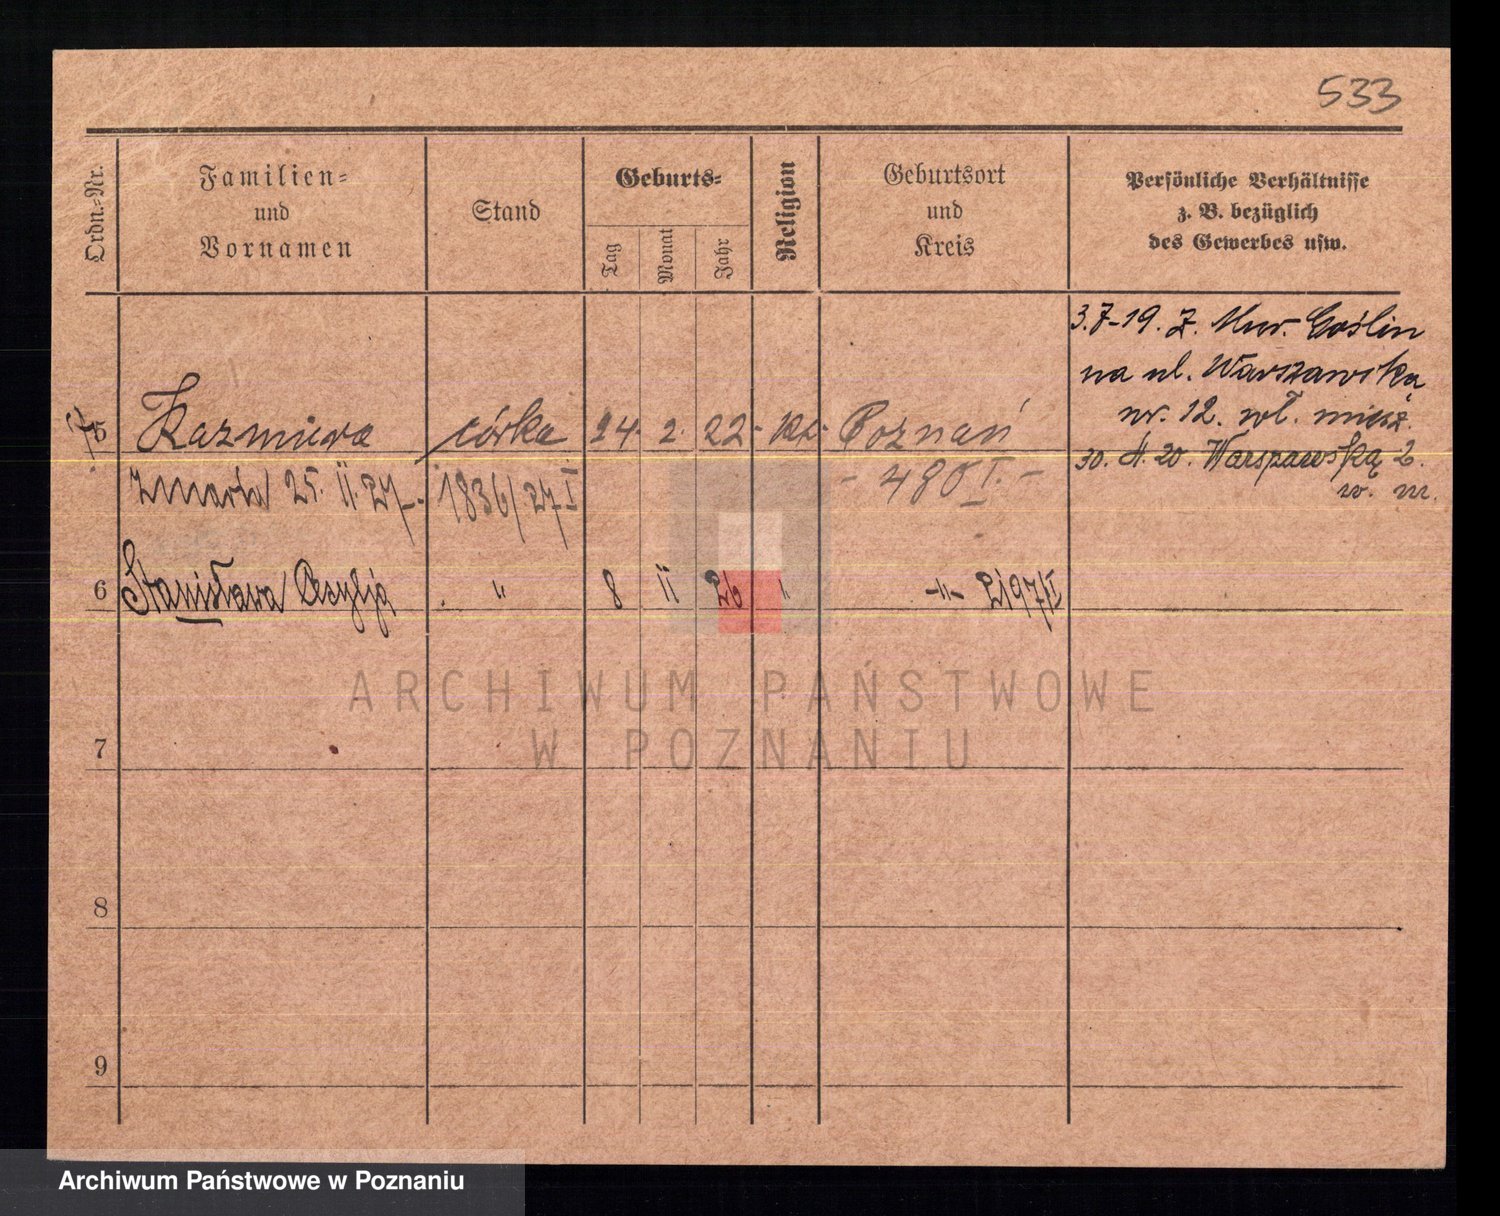 533
Ordn.-Nr.
Familien-
und
Vornamen
Stand
Geburts-
Tag
Monat
Jahr
Religion
Geburtsort
und
Kreis
Persönliche Verhältnisse
z. B. bezüglich
des Gewerbes usw.
3.7-19. Z. Mur. Goślin
na ul. Warszawską
nr. 12. wł. miesz.
5 Kazmiera córka 24. 2. 22. kt. Poznań
30. 20. Warszawską 2.
w. m.
zmarła 25. II. 27. 1836/27 I - 480 I. -
6 Stanisława " 8 II 26 " -"- 2197/I
7
8
9
ARCHIWUM PAŃSTWOWE
W POZNANIU
Archiwum Państwowe w Poznaniu